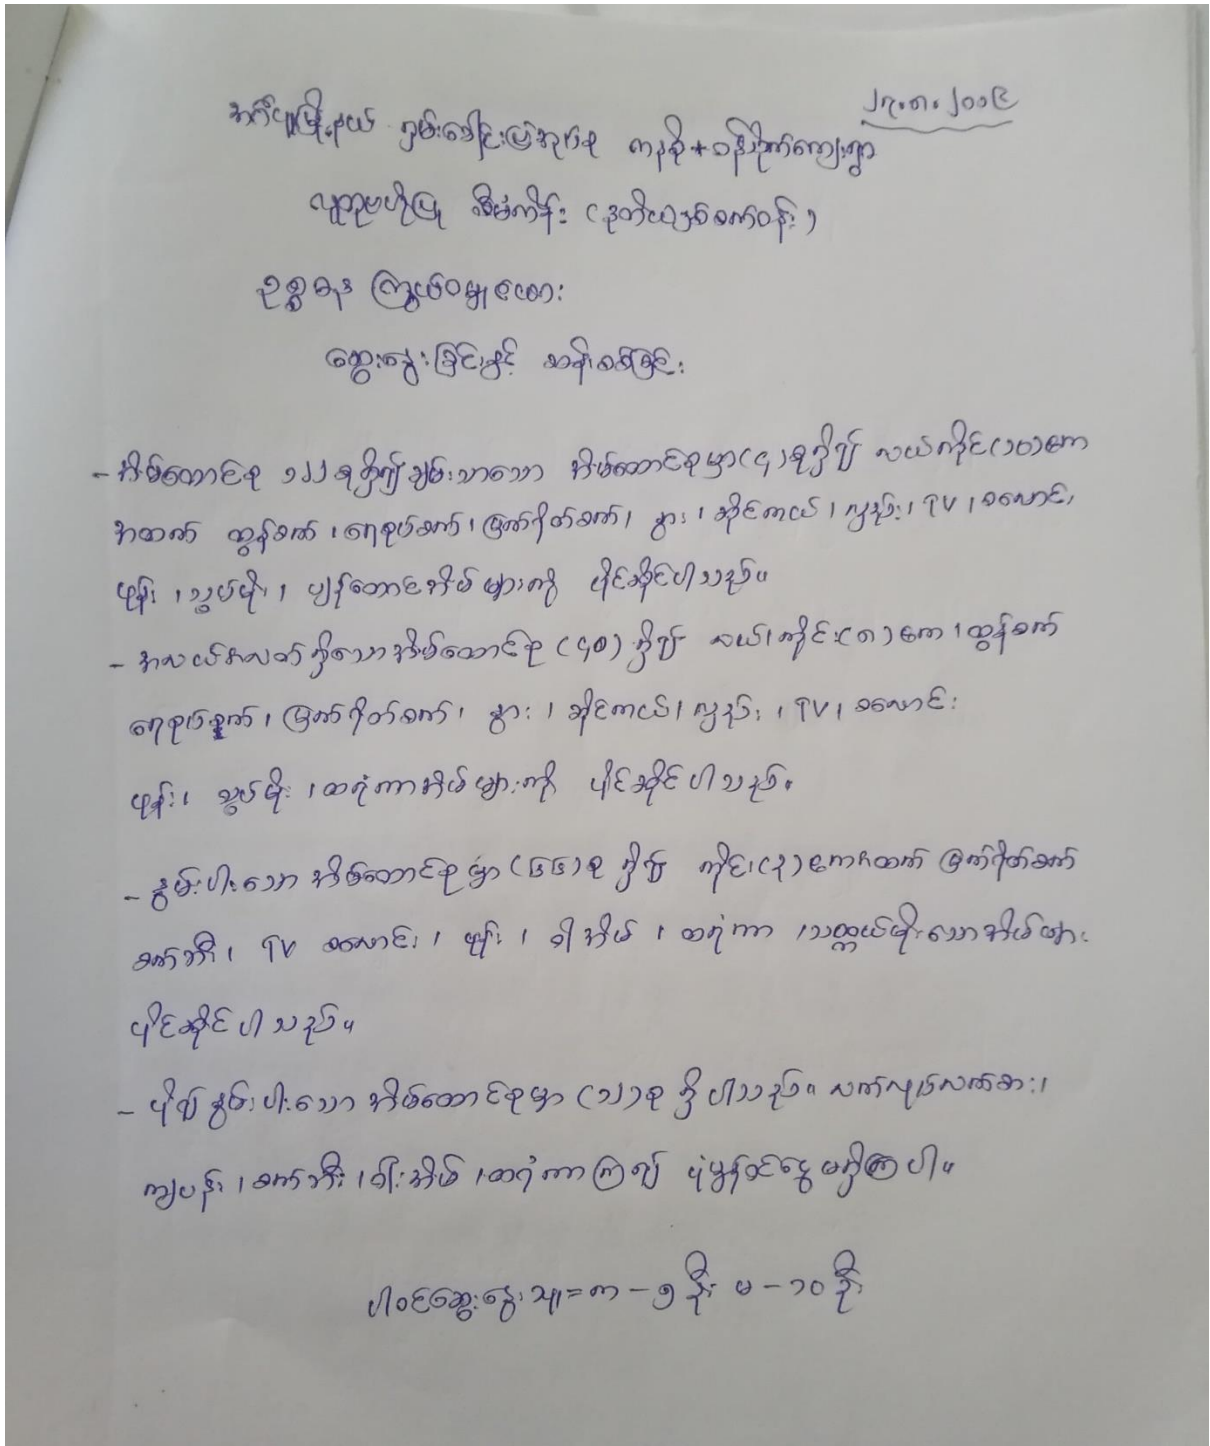 ၂၇.၈.၂၀၁၉
အင်္ဂပူမြို့နယ် ရှမ်းခေါင်းမြဲအုပ်စု ကနစို + ဝန်သိုက်ကျေးရွာ
လူထုဗဟိုပြု စီမံကိန်း (ဒုတိယနှစ်စက်ဝန်း)
ဥစ္စာဓန ကြွယ်ဝမှုလေ့လာ
ဆွေးနွေးခြင်းနှင့် ဆန်းစစ်ခြင်း
- အိမ်ထောင်စု ၁၂၂ စုရှိ၍ ချမ်းသာသော အိမ်ထောင်စုမှာ (၄) စုရှိ၍ လယ်ကိုင်း(၁၀)ဧက
အထက် ထွန်စက်၊ ရေစုပ်စက်၊ မြက်ရိတ်စက်၊ နွား၊ ဆိုင်ကယ်၊ လှည်း၊ TV၊ စလောင်း
ဖုန်း၊ သွပ်မိုး၊ ပျဉ်ထောင်အိမ်များကို ပိုင်ဆိုင်ပါသည်။
- အလယ်အလတ်ရှိသော အိမ်ထောင်စု (၄၀) ရှိ၍ လယ်၊ ကိုင်း (၈) ဧက၊ ထွန်စက်
ရေစုပ်စက်၊ မြက်ရိတ်စက်၊ နွား၊ ဆိုင်ကယ်၊ လှည်း၊ TV၊ စလောင်း
ဖုန်း၊ သွပ်မိုး၊ ထရံကာအိမ်များကို ပိုင်ဆိုင်ပါသည်။
- နွမ်းပါးသော အိမ်ထောင်စုမှာ (၆၆) စု ရှိ၍ ကိုင်း (၃) ဧကအထက် မြက်ရိတ်စက်
စက်ဘီး၊ TV စလောင်း၊ ဖုန်း၊ ဝါးအိမ်၊ ထရံကာ၊ သက္ကယ်မိုးသောအိမ်များ
ပိုင်ဆိုင်ပါသည်။
- ပို၍နွမ်းပါးသော အိမ်ထောင်စုမှာ (၁၂) စု ရှိပါသည်။ လက်လုပ်လက်စား၊
ကျပန်း၊ စက်ဘီး၊ ဝါးအိမ်၊ ထရံကာကြ၍ ပုံမှန်ဝင်ငွေမရှိကြပါ။
ပါဝင်ဆွေးနွေးသူ = ကျား - ၅ ဦး မ - ၁၀ ဦး